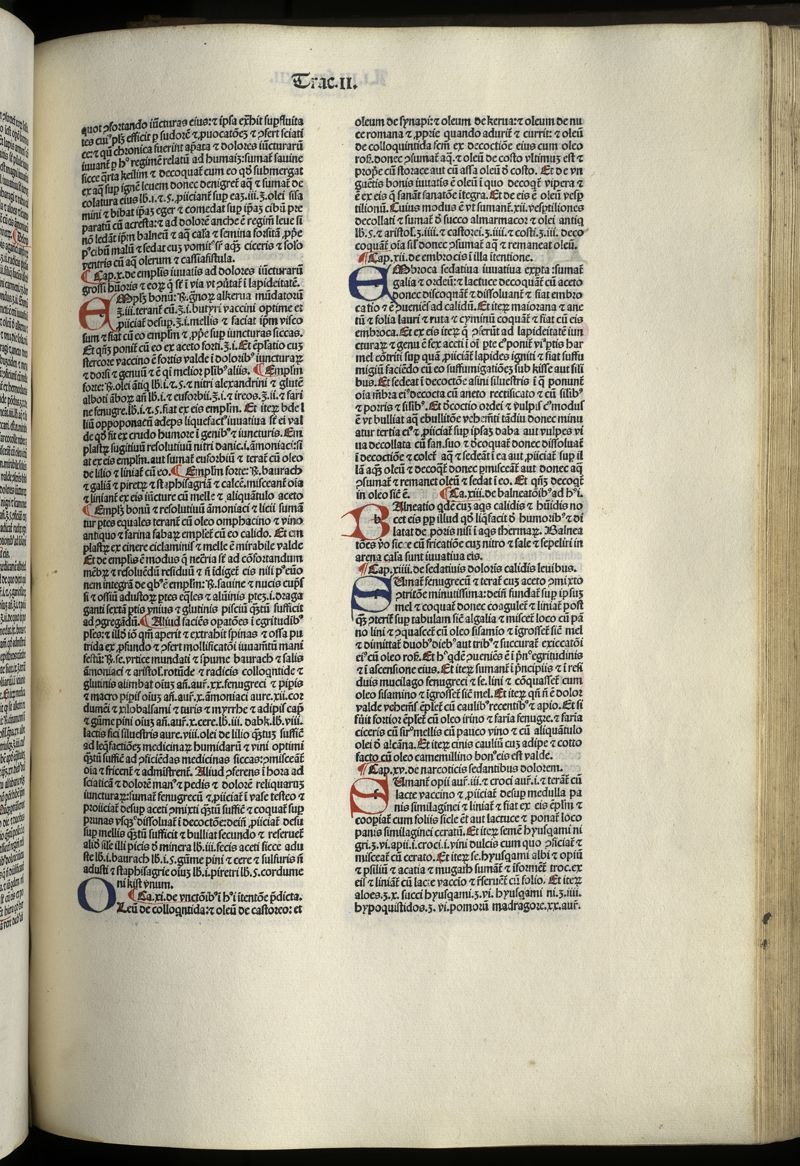 Trac. II.
quot ꝯfortando iūcturas eius: ⁊ ipsa exhit supfluita
tes cuiꝰ pl̄s efficit p sudorē ⁊ ꝓuocatōez ⁊ ꝯfert sciati
ce: ⁊ qn̄ chronica fuerint apata ⁊ dolores iūcturarū
iuuant p hͦ regimē relatū ad humaiz: sumat sauine
sicce qrta keilim ⁊ decoquat cum eo qd̄ submergat
ex aq sup ignē leuem donec denigret aq ⁊ sumat de
colatura eius lb.i.⁊.s. ꝓiiciant sup eaz.iii.ʒ.olei sisa
mini ⁊ bibat ipaz eger ⁊ comedat sup ipaz cibū pre
paratū cū acresta: ⁊ ad dolorē anche ē regim̄ leue si
nō ledāt ipm balneū ⁊ aq casa ⁊ semina forsitā ꝓpe
pꝰ cibū malū ⁊ sedat eus vomitꝰ si aq̄ʒ ciceris ⁊ solo
ventris cū aq olerum ⁊ cassiafistula.
¶ Cap.x. de emplis iuuatis ad dolores iūcturarū
grossi hūoris ⁊ eorꝝ q̄ st̄ ī via vt ꝯutāt ī lapideitatē.
EMpl̄ʒ bonū: ℞. gnorꝝ alkerua mūdatorū
ʒ.iii. terant cū.ʒ.i. butyri vaccini optime et
ꝓiiciat desup.ʒ.i. mellis ⁊ faciat ipm visco
sum ⁊ fiat cū eo emplm̄ ⁊ ꝓpe sup iuncturas siccas.
Et qn̄ʒ ponit̄ cū eo ex aceto forti.ʒ.i. Et eplatio cuʒ
stercore vaccino ē fortis valde ī doloribꝰ iuncturarꝝ
⁊ dorsi ⁊ genuū ⁊ ē qͥ melior plibꝰ aliis. ¶ Emplm̄
forte: ℞. olei ātiq lb.i.⁊.s.⁊ nitri alexandrini ⁊ glutē
alboti āborꝝ an̄ lb.i.⁊ euforbii.ʒ.i.⁊ ireos.ʒ.ii.⁊ fari
ne fenugre.lb.i.⁊.s. fiat ex eis emplm̄. Et iterꝝ bde l
liū oppoponacū adeps liquefactꝰ iuuatiua st̄ ei val
de qd̄ fit ex crudo humore ī genibꝰ ⁊ iuncturis. Em
plastꝝ fugitiuū resolutiuū nitri danic.i. āmoniaci: fi
at ex eis emplm̄. aut sumat euforbiū ⁊ terat̄ cū oleo
de lilio ⁊ liniat̄ cū eo. ¶ Emplm̄ forte: ℞. baurach
⁊ galiā ⁊ piretꝝ ⁊ staphisagriā ⁊ calcē. misceant̄ oia
⁊ liniant̄ ex eis iūcture cū melle ⁊ aliquātulo aceto
¶ Emplʒ bonū ⁊ resolutiuū āmoniaci ⁊ licii sumā
tur ptes equales terant̄ cū oleo omphacino ⁊ vino
antiquo ⁊ farina fabarꝝ emplet̄ cū eo calido. Et em
plastꝝ ex cinere ciclaminis ⁊ melle ē mirabile valde
Et de emplis ē modus q̄ necr̄ia st̄ ad ꝯfortandum
mēbꝝ ⁊ resoluēdū residuū ⁊ nō īdiget̄ eis nisi pꝰ euō
nem integrā de qbꝰ ē emplm̄: ℞. sauine ⁊ nucis cup̄s
si ⁊ ossiū adustorꝝ ptes eq̄les ⁊ alūinis ptez.i. draga
ganti sextā ptis ynius ⁊ glutinis pisciū qn̄tū sufficit
ad ꝯgregādū. ¶ Aliud faciēs opatōes ī egritudibꝰ
ptes: ⁊ illd̄ iō qn̄ aperit ⁊ extrahit spinas ⁊ ossa pu
trida ex ꝓfundo ⁊ ꝯfert mollificatōi iuuamtū mani
festū: ℞. se. vrtice mundati ⁊ spume baurach ⁊ salis
āmoniaci ⁊ aristol. rotūde ⁊ radicis colloqntide ⁊
glutinis alimbat oiuʒ an̄. aur̄.xx. fenugreci ⁊ pipis
⁊ macro pipis oiuʒ an̄. aur̄.x. āmoniaci aure.xii. cor
dumēi ⁊ xilobalsami ⁊ turis ⁊ myrrhe ⁊ adipis cap̄
⁊ gūme pini oiuʒ an̄. aur̄.x. cere.lb.iii. dabk.lb.viii.
lactis fici siluestris aure.viii. olei de lilio qn̄tū suffic
ad leq̄factiōeʒ medicinarꝝ humidarū ⁊ vini optimi
qn̄tū suffic̄ ad ꝯficiēdas medicinas siccas: ꝑmisceāt̄
oia ⁊ fricent̄ ⁊ admistrent̄. Aliud ꝯferens ī hora ad
sciaticā ⁊ dolorē manꝰ ⁊ pedis ⁊ dolorē reliquarꝝ
iuncturarꝝ: sumat̄ fenugrecū ⁊ ꝓiiciat̄ ī vase testeo ⁊
proiiciat̄ desup aceti ꝯmixti qn̄tū suffic̄ ⁊ coquat̄ sup
prunas vsqꝫ dissoluat̄ ī decoctōe: dein̄ ꝓiiciat̄ desu
sup mellis qn̄tū sufficit ⁊ bulliat secundo ⁊ reseruet̄
aliō sile illi picis ō minera lb.iii. fecis aceti sicce adu
ste lb.i. baurach lb.i.s. gūme pini ⁊ cere ⁊ sulfuris nō
adusti ⁊ staphisagrie oiuʒ lb.i. piretri lb.s. cordume
ni kist ynum.
¶ Ca.xi. de vnctōibꝰ hͥ itentōe p̄dicta.
OLeū de colloqntida: ⁊ oleū de castoreo: et
oleum de synapi: ⁊ oleum de kerua: ⁊ oleum de nu
ce romana ⁊ ꝓprie quando adurit̄ ⁊ currit: ⁊ oleū
de colloquintida scm̄ ex decoctiōe eius cum oleo
roʒ. donec ꝯsumat̄ aq. ⁊ oleū de costo vltimuʒ est ⁊
prope cū storace aut cū assa oleū ō costo. Et de vn
guētis bonis iuuatis ē oleū ī quo decoqt̄ vipera ⁊
ē ex eis q̄ sanāt sanatōe itegra. Et de eis ē oleū vesp
tilionū. Cuius modus ē vt sumant̄.xii. vesptiliones
decollati ⁊ sumat̄ ō succo almarmacor ⁊ olei antiq
lb.s. ⁊ aristol.ʒ.iiii. ⁊ castorei.ʒ.iiii. ⁊ costi.ʒ.iii. deco
coquāt̄ oia sil' donec ꝯsumat̄ aq ⁊ remaneat oleū.
¶ Cap.xii. de embrocis ī illa itentione.
EMbroca sedatiua iuuatiua expta: sumat̄
galia ⁊ ordeū: ⁊ lactuce decoquāt̄ cū aceto
donec discoquāt̄ ⁊ dissoluant̄ ⁊ fiat embro
catio ⁊ ē ꝯueniēs ad calidū. Et iterꝝ maiorana ⁊ ane
tū ⁊ folia lauri ⁊ ruta ⁊ cyminū coquāt̄ ⁊ fiat cū eis
embroca. Et ex eis iterꝝ q̄ ꝯferūt ad lapideitatē iun
cturarꝝ ⁊ genu ē fex aceti ī oī pte eꝰ ponit̄ viꝰptis har
mel cōtriti sup quā ꝓiiciant̄ lapides igniti ⁊ fiat suffu
migiū faciēdo cū eo suffumigatiōes sub kisse aut sili
bus. Et sedeat ī decoctōe asini siluestris ī q̄ ponunt̄
oia mēbra eiꝰ decocta cū aneto rectificato ⁊ cū silibꝰ
⁊ porris ⁊ silibꝰ. Et ō coctio ordei ⁊ vulpis eꝰ modus
ē vt bulliat aq ebullitōe vehemēti tādiu donec minu
atur tertia eiꝰ ⁊ ꝓiiciat̄ sup ipsaʒ daba aut vulpes vi
ua decollata cū san. suo ⁊ dcoquat̄ donec dissoluat̄
ī decoctiōe ⁊ colet̄ aq ⁊ sedeāt ī ea aut ꝓiiciat̄ sup il
lā aq̄ʒ oleū ⁊ decoqt̄ donec pmisceant̄ aut donec aq
ꝯsumat̄ ⁊ remanet oleū ⁊ sedat īeo. Et qn̄ʒ decoqt̄
in oleo sic ē. ¶ Ca.xiii. de balneatōibꝰ ad hͦ i.
BAlneatio qdē cuʒ aqs calidis ⁊ hūidis no
cet eis pp̄ illud qd̄ lq̄facit ō humoribꝰ ⁊ di
latat de poris nisi ī aqs thermarꝝ. Balnea
tōes vō sicce cū fricatiōe cuʒ nitro ⁊ sale ⁊ sepeliri in
arena casa sunt iuuatiua eis.
¶ Cap.xiiii. de sedatiuis doloris calidis leuibus.
SUmat̄ fenugrecū ⁊ terat̄ cuʒ aceto ꝯmixto
ꝯtritōe minutissima: dein̄ fundat̄ sup ipsuʒ
mel ⁊ coquat̄ donec coagulet̄ ⁊ liniat̄ post
q̄ʒ ꝯterit̄ sup tabulam sic̄ algalia ⁊ miscet̄ loco cū pā
no lini ⁊ ꝯquascet̄ cū oleo sisamio ⁊ īgrosset̄ sic̄ mel
⁊ dimittat̄ duobꝰ diebꝰ aut tribꝰ ⁊ succurrat̄ exiccatōi
eiꝰ cū oleo roʒ. Et hͦ qdē ꝯueniēs ē ī pnꝰ egritudinis
⁊ ī ascensione eius. Et iterꝝ sumant̄ ī pncipiis ⁊ ī resi
duis mucilago fenugreci ⁊ se. lini ⁊ cōquasset̄ cum
oleo sisamino ⁊ īgrosset̄ sic̄ mel. Et iterꝝ qn̄ nō ē dolor
valde vehemēs eplet̄ cū caulibꝰ recentibꝰ ⁊ apio. Et si
fūit fortior eplet̄ cū oleo irino ⁊ faria fenugre. ⁊ faria
ciceris cū sirꝰ mellis cū pauco vino ⁊ cū aliquātulo
olei ō alcāna. Et iterꝝ cinis cauliū cuʒ adipe ⁊ cotto
facto cū oleo camemillino bonꝰ eis est valde.
¶ Cap.xv. de narcoticis sedantibus dolorem.
SUmant̄ opii aur̄.iii. ⁊ croci aur̄.i. ⁊ terat̄ cū
lacte vaccino ⁊ ꝓiiciat̄ desup medulla pa
nis similaginei ⁊ liniat̄ ⁊ fiat ex eis eplm̄ ⁊
coopiat̄ cum foliis sicle ēt aut lactuce ⁊ ponat̄ loco
panis similaginei ceratū. Et iterꝝ semē hyusqami ni
gri.ʒ.vi. apii.i. croci.i. vini dulcis cum quo ꝯficiat̄ ⁊
misceat̄ cū cerato. Et iterꝝ se. hyusqami albi ⁊ opiū
⁊ psiliū ⁊ acatia ⁊ mugaih sumāt̄ ⁊ iformēt̄ troc. ex
eis ⁊ liniāt̄ cū lacte vaccio ⁊ ꝯseruēt̄ cū folio. Et iterꝝ
aloes.ʒ.x. succi hyusqami.ʒ.vi. hyusqami ni.ʒ.iiii.
hypoquistidos.ʒ.vi. pomorū madragore.xx. aur̄.